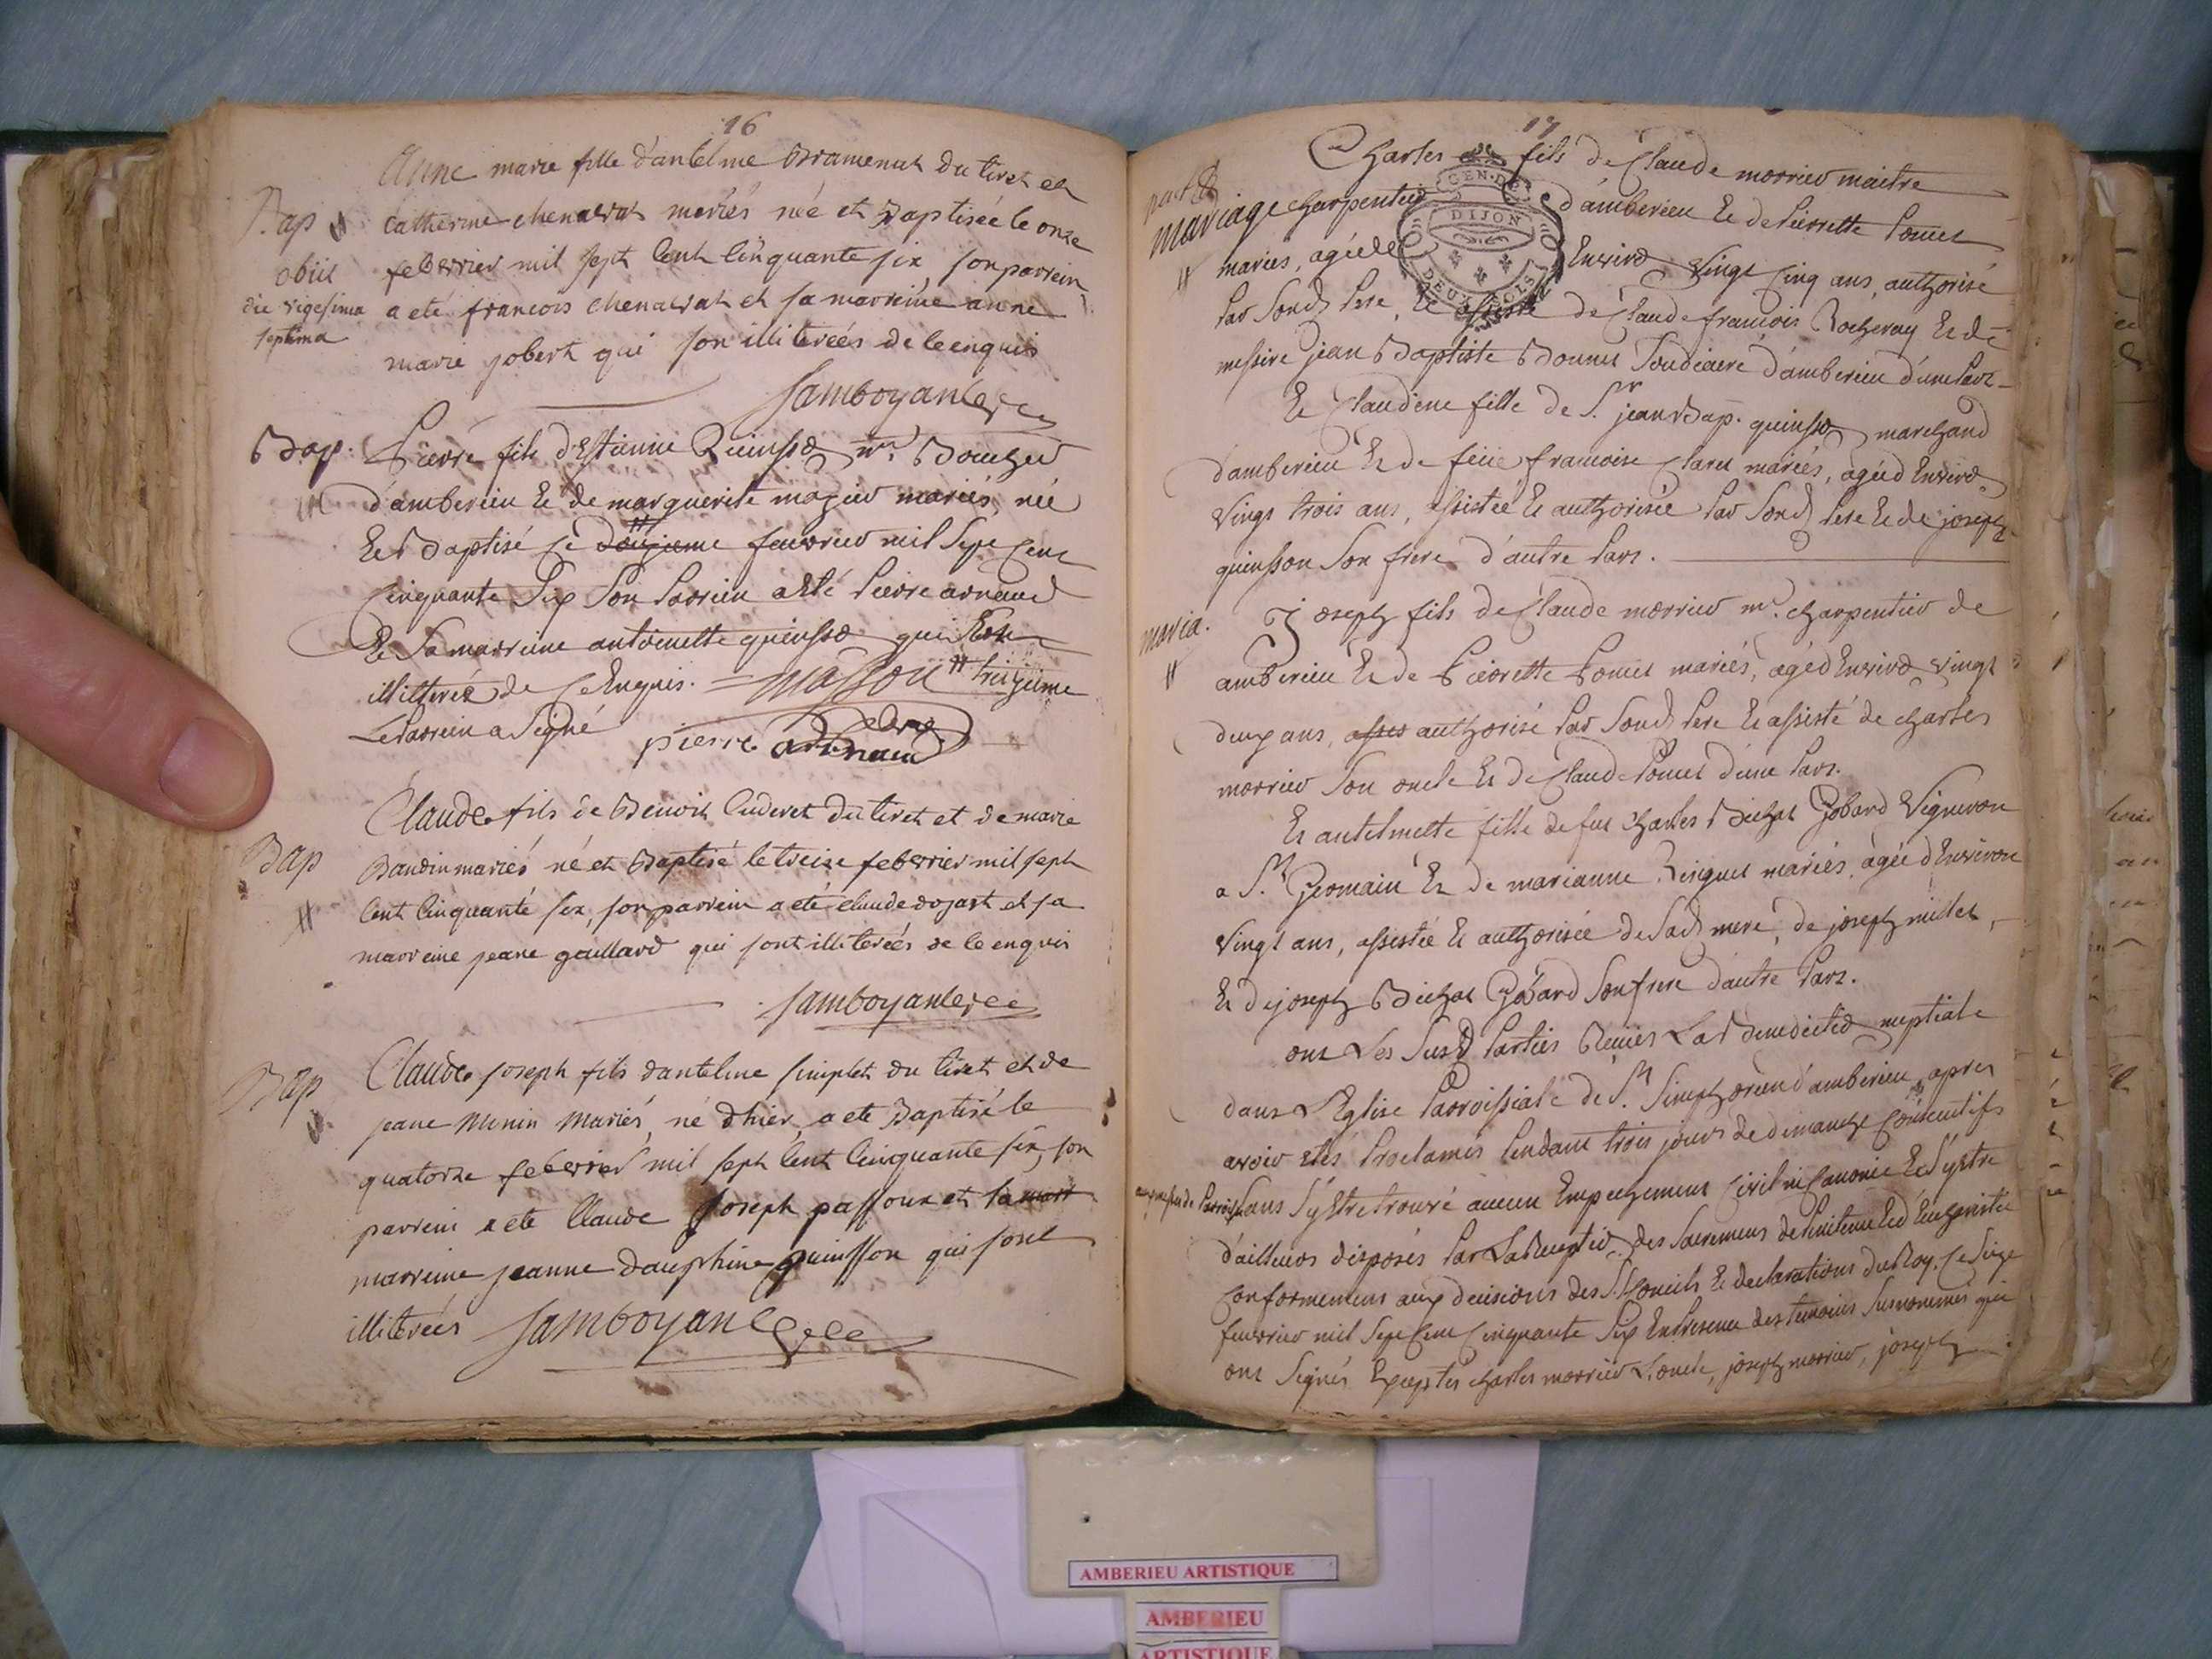 16
Anne marie fille d'antelme Bramenut du tiret et
Bap catherine chenavat mariés née et Baptisée le onze
obiit febvrier mil sept cent cinquante six, son parrein
die vigesima a eté francois chenavat et sa marreine anne
septima
marie jobert qui son illiterées de ce enquis
Bap: Pierre fils d'Estienne Quinson me. Boucher
d'amberieu et de marguerite mazuir mariés, née
Et Baptisé ce douzieme fevvrier mil Sept Cent
Cinquante Six Son Parrein a Eté Pierre arnaud
Et Sa marreine antoinette quinson qui sont
illitterés de Ce Enquis. = Masson # treizieme
Le Parrein a Signé
pierre
Claude fils de Benoit Cuderet du tiret et de marie
Bap Baudin mariés né et Baptisé le treize febvrier mil sept
cent cinquante six, son parrein a eté claude dojast et sa
marreine jeane gaillard qui sont illiterées de ce enquis
Claude joseph fils dantelme simplet du tiret et de
Bap jeane Monin Mariés, né d'hier, a ete Baptisé le
quatorze febvrier mil sept cent cinquante six, son
parrein a ete Claude Joseph passoux et sa marr
marreine jeanne dauphine quinsson qui sont
illiterées
17
Charles fils de Claude morrier maitre
mariage charpentier d'amberieu Et de Pierrette Pomet
mariés, agé de Environ Vingt Cinq ans, authorisé
Par Sond. Pere, Et assisté de Claude francois Rocheray Et de
messire jean Baptiste Bonnet Soudiacre d'amberieu d'une Part
GEN. DE
DIJON
DEUX SOLS
Et Claudine fille de Sr. jean Bap. quinson marchand
d'amberieu Et de feüe francoise Claret mariés, agée d'Environ
Vingt trois ans, assistée Et authorisée Par Sond. Pere Et de joseph
quinsson Son frere d'autre Part.
maria. Joseph fils de Claude morrier me. charpentier de
amberieu Et de Pierrette Pomet mariés, agé d'Environ Vingt
deux ans, asses authorisé Par Sond. Pere Et assisté de charles
morrier Son oncle Et de Claude Pomet d'une Part.
Et antelmette fille de fut Charles Bichat Gobard Vigneron
a St. Germain Et de marianne Ringuet mariés, agée d'Environ
Vingt ans, assistée Et authorisée de Sad. mere, de joseph millet,
Et de joseph Bichat Gobard Son frere d'autre Part.
ont Les Susd. Parties Reçües La Benediction nuptiale
dans L'Eglise Parroissiale de St. Simphorien d'amberieu, apres
avoir Etés Proclamés Pendant trois jours de dimanche Consecutifs
Sans S'y Etre trouvé aucun Empechement Civil ni Canonic Et S'y etre
d'ailleurs disposés Par La Reception des Sacremens de Penitence Et d'Eucharistie
Conformement aux decisions des S. Conciles Et declarations du Roy. Ce Seize
fevvrier mil Sept Cent Cinquante Six En Presence des temoins Susnommés qui
ont Signés Exceptés charles morrier L'oncle, joseph morrier, joseph
AMBERIEU ARTISTIQUE
AMBERIEU
ARTISTIQUE